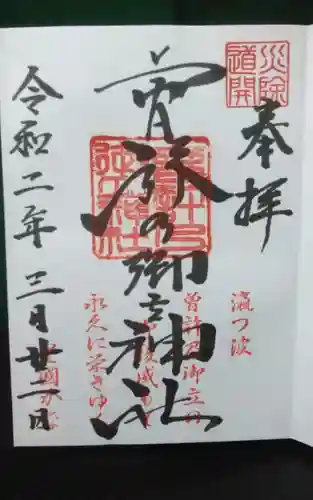 災除
道開
奉拝
曽許乃御立神社
令和二年三月廿二日
瀛つ波
曽許乃御立
永久に栄きゆ